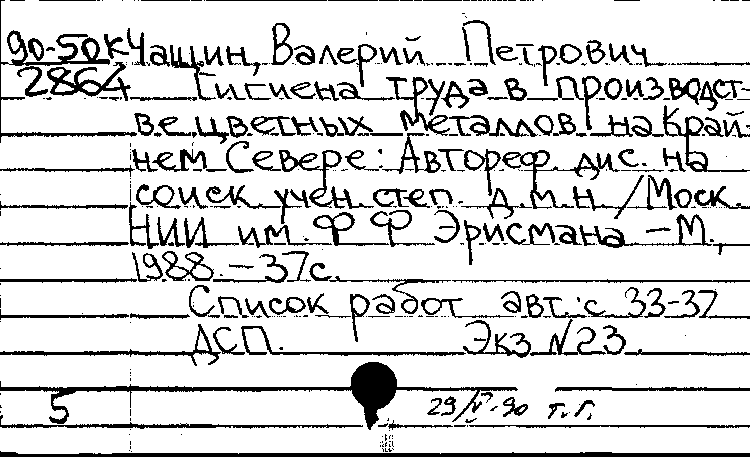 90-50К Чащин, Валерий Петрович
2864 Гигиена труда в производст-
ве цветных металлов на край-
нем Севере: Автореф. дис. на
соиск. учен. степ. д.м.н. /Моск.
НИИ им. Ф Ф Эрисмана –М.,
1988.–37с.
Список работ авт.: с 33-37
ДСП. Экз N 23.
5 29/V-90 т.г.